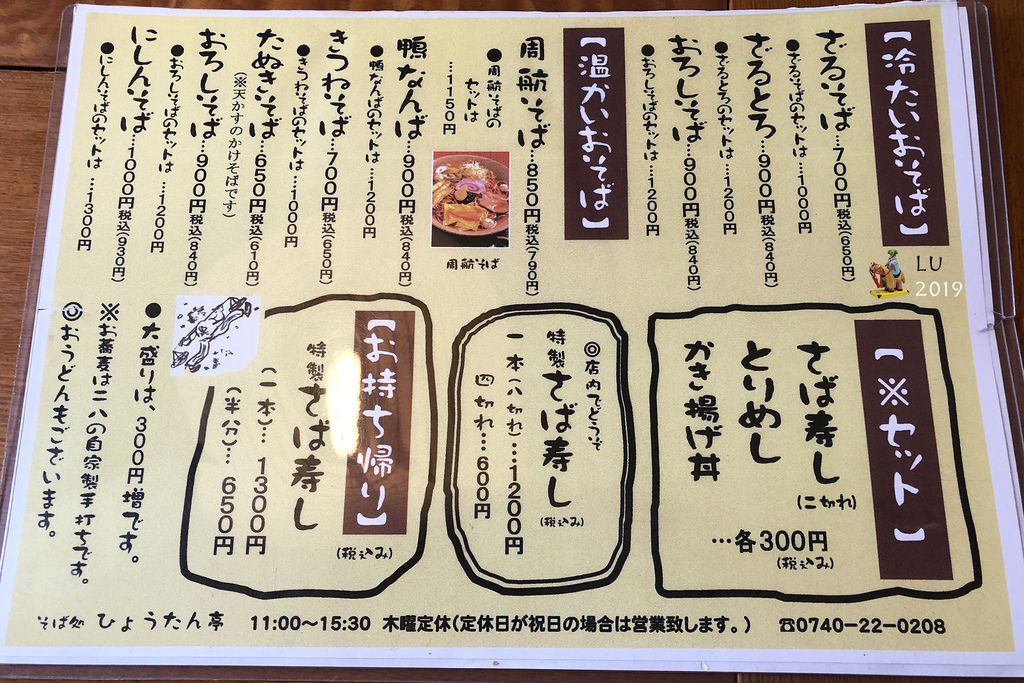 【冷たいおそば】
ざるそば…700円税込(650円)
●ざるそばのセットは…1000円
ざるとろ…900円税込(840円)
●ざるとろのセットは…1200円
おろしそば…900円税込(840円)
●おろしそばのセットは…1200円
【温かいおそば】
周航そば…850円税込(790円)
●周航そばの
セットは
…1150円
周航そば
鴨なんば…900円税込(840円)
●鴨なんばのセットは…1200円
きつねそば…700円税込(650円)
●きつねそばのセットは…1000円
たぬきそば…650円税込(610円)
(※天かすのかけそばです)
おろしそば…900円税込(840円)
●おろしそばのセットは…1200円
にしんそば…1000円税込(930円)
●にしんそばのセットは…1300円
LU
2019
【※セット】
さば寿し(二切れ)
とりめし
かき揚げ丼
…各300円
(税込み)
◎店内でどうぞ
特製さば寿し(税込み)
一本(八切れ)…1200円
四切れ…600円
【お持ち帰り】(税込み)
特製さば寿し
(一本)…1300円
(半分)…650円
●大盛りは、300円増です。
※お蕎麦は二八の自家製手打ちです。
◎おうどんもございます。
そば処 ひょうたん亭 11:00〜15:30 木曜定休(定休日が祝日の場合は営業致します。) ☎0740-22-0208